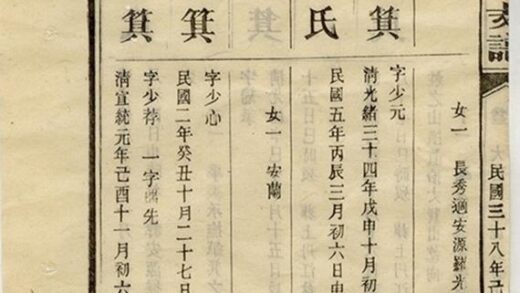 譜
民國三十八年己
女一 長秀適安源
箕
字少元
清光緒三十四年戊申十月初
氏
民國五年丙辰三月初六日申
女一 安蘭
箕
字少心
民國二年癸丑十月二十七日
箕
字少荐 一字 先
清宣統元年己酉十一月初六